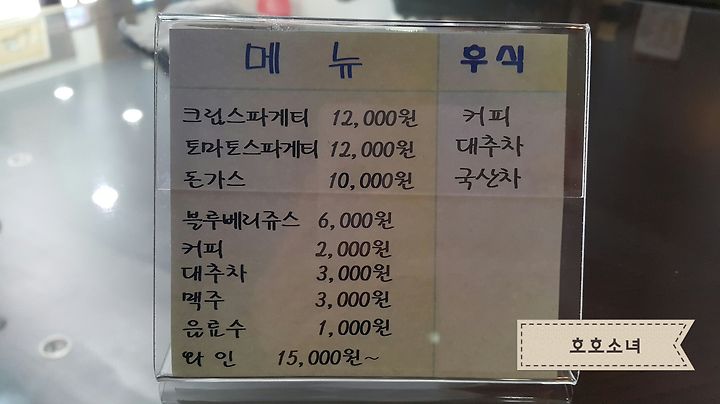 메 뉴 후식
크림스파게티 12,000원 커피
토마토스파게티 12,000원 대추차
돈가스 10,000원 국산차
블루베리쥬스 6,000원
커피 2,000원
대추차 3,000원
맥주 3,000원
음료수 1,000원
와 인 15,000원~
호호소녀